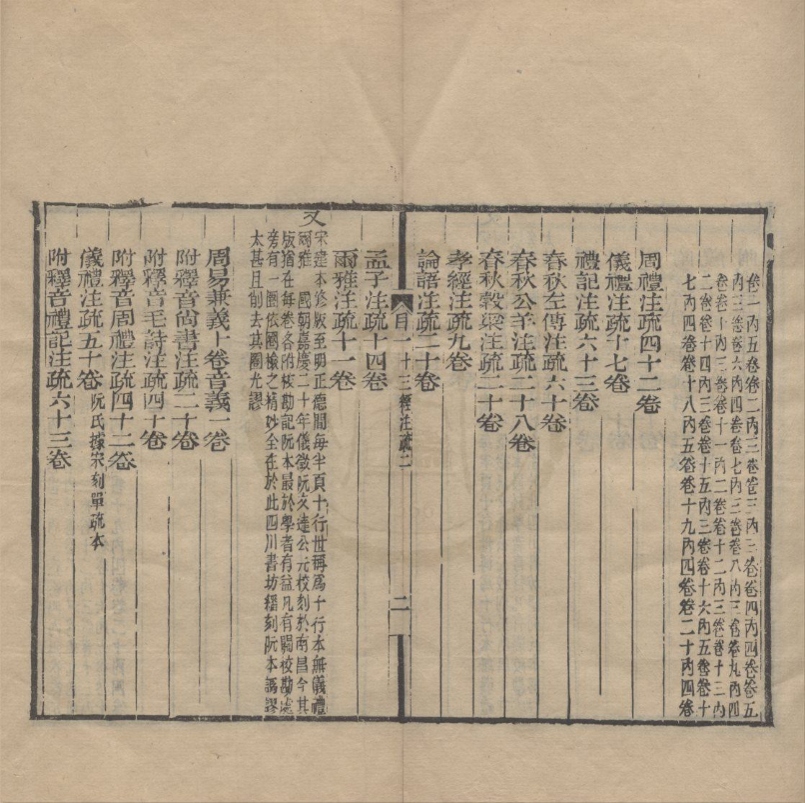 卷一內五卷卷二內三卷卷三內三卷卷四內四卷卷五
內三卷卷六內四卷卷七內三卷卷八內三卷卷九內四
卷卷十內三卷卷十一內二卷卷十二內三卷卷十三內
二卷卷十四內三卷卷十五內三卷卷十六內五卷卷十
七內四卷卷十八內五卷卷十九內四卷卷二十內四卷
周禮注疏四十二卷
儀禮注疏十七卷
禮記注疏六十三卷
春秋左傳注疏六十卷
春秋公羊注疏二十八卷
春秋穀梁注疏二十卷
孝經注疏九卷
論語注疏二十卷
目一 十三經注疏二 二
孟子注疏十四卷
爾雅注疏十一卷
又
宋建本修版至明正德間每半頁十行世稱爲十行本無儀禮
爾雅 國朝嘉慶二十年儀徵阮文達公元校刻於南昌今其
版猶在每卷各附校勘記阮本最於學者有益凡有關校勘處
旁有一圈依圈檢之精妙全在於此四川書坊繙刻阮本譌謬
太甚且削去其圈尤謬
周易兼義十卷音義一卷
附釋音尚書注疏二十卷
附釋音毛詩注疏四十卷
附釋音周禮注疏四十二卷
儀禮注疏五十卷 阮氏據宋刻單疏本
附釋音禮記注疏六十三卷